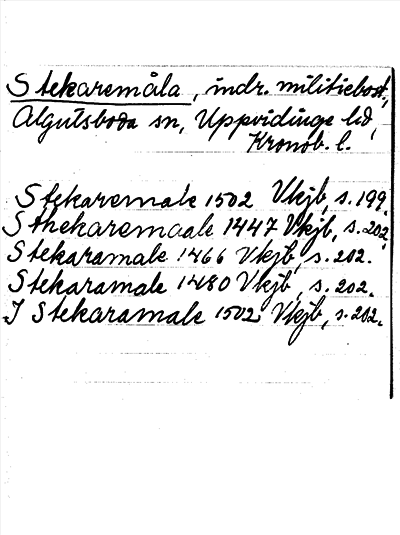 Stekaremåla, indr. militiebost.,
Algutsboda sn, Uppvidinge hd,
Kronob. l.
Stekaremale 1502 Vkjb, s. 199.
Sthekaremaale 1447 Vkjb, s. 202.
Stekaramale 1466 Vkjb, s. 202.
Stekaramale 1480 Vkjb, s. 202.
J Stekaramale 1502 Vkjb, s. 202.